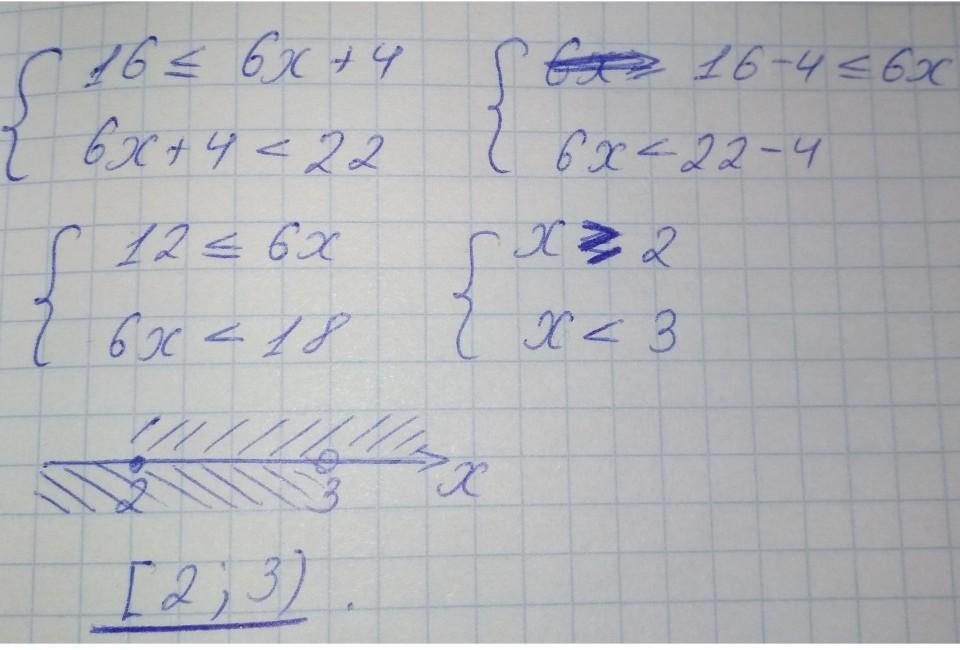 { 16 ≤ 6x+4
6x+4 < 22
{ 16-4 ≤ 6x
6x < 22-4
{ 12 ≤ 6x
6x < 18
{ x ≥ 2
x < 3
2 3 x
[2; 3).